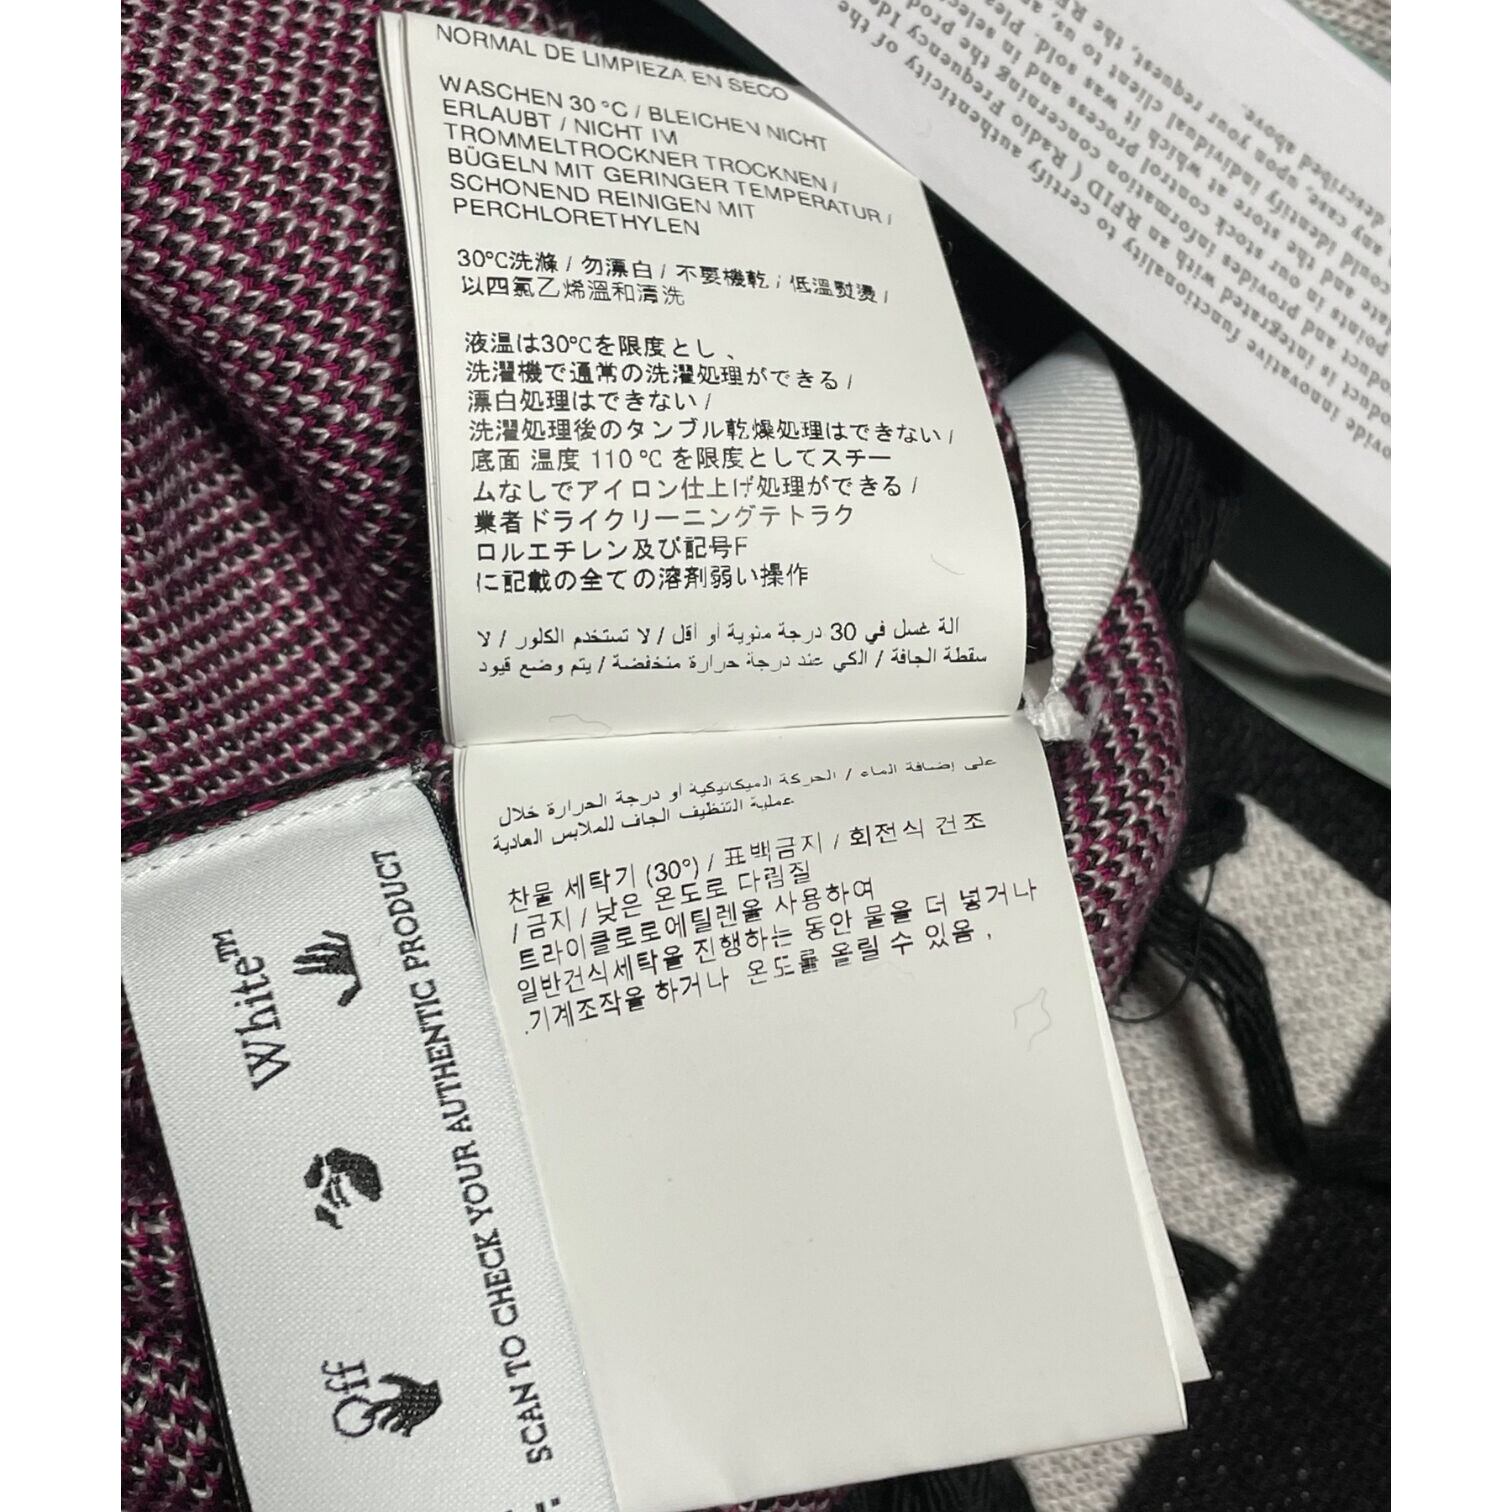 NORMAL DE LIMPIEZA EN SECO
WASCHEN 30 °C / BLEICHEN NICHT
ERLAUBT / NICHT IM
TROMMELTROCKNER TROCKNEN /
BÜGELN MIT GERINGER TEMPERATUR /
SCHONEND REINIGEN MIT
PERCHLORETHYLEN
30°C洗滌 / 勿漂白 / 不要機乾 / 低溫熨燙 /
以四氯乙烯溫和清洗
液温は30℃を限度とし 、
洗濯機で通常の洗濯処理ができる /
漂白処理はできない /
洗濯処理後のタンブル乾燥処理はできない /
底面 温度 110 ℃ を限度としてスチー
ムなしでアイロン仕上げ処理ができる /
業者ドライクリーニングテトラク
ロルエチレン及び記号F
に記載の全ての溶剤弱い操作
الة غسل في 30 درجة مئوية أو أقل / لا تستخدم الكلور / لا
سقطة الجافة / الكي عند درجة حرارة منخفضة / يتم وضع قيود
على إضافة الماء / الحركة الميكانيكية أو درجة الحرارة خلال
عملية التنظيف الجاف للملابس العادية
찬물 세탁기 (30°) / 표백금지 / 회전식 건조
/ 금지 / 낮은 온도로 다림질
트라이클로로에틸렌을 사용하여
일반건식세탁을 진행하는 동안 물을 더 넣거나
.기계조작을 하거나 온도를 올릴 수 있음 ,
Off White™
SCAN TO CHECK YOUR AUTHENTIC PRODUCT
ovide innovative functionality to certify authenticity of the
product is integrated with an RFID ( Radio Frequency Ide